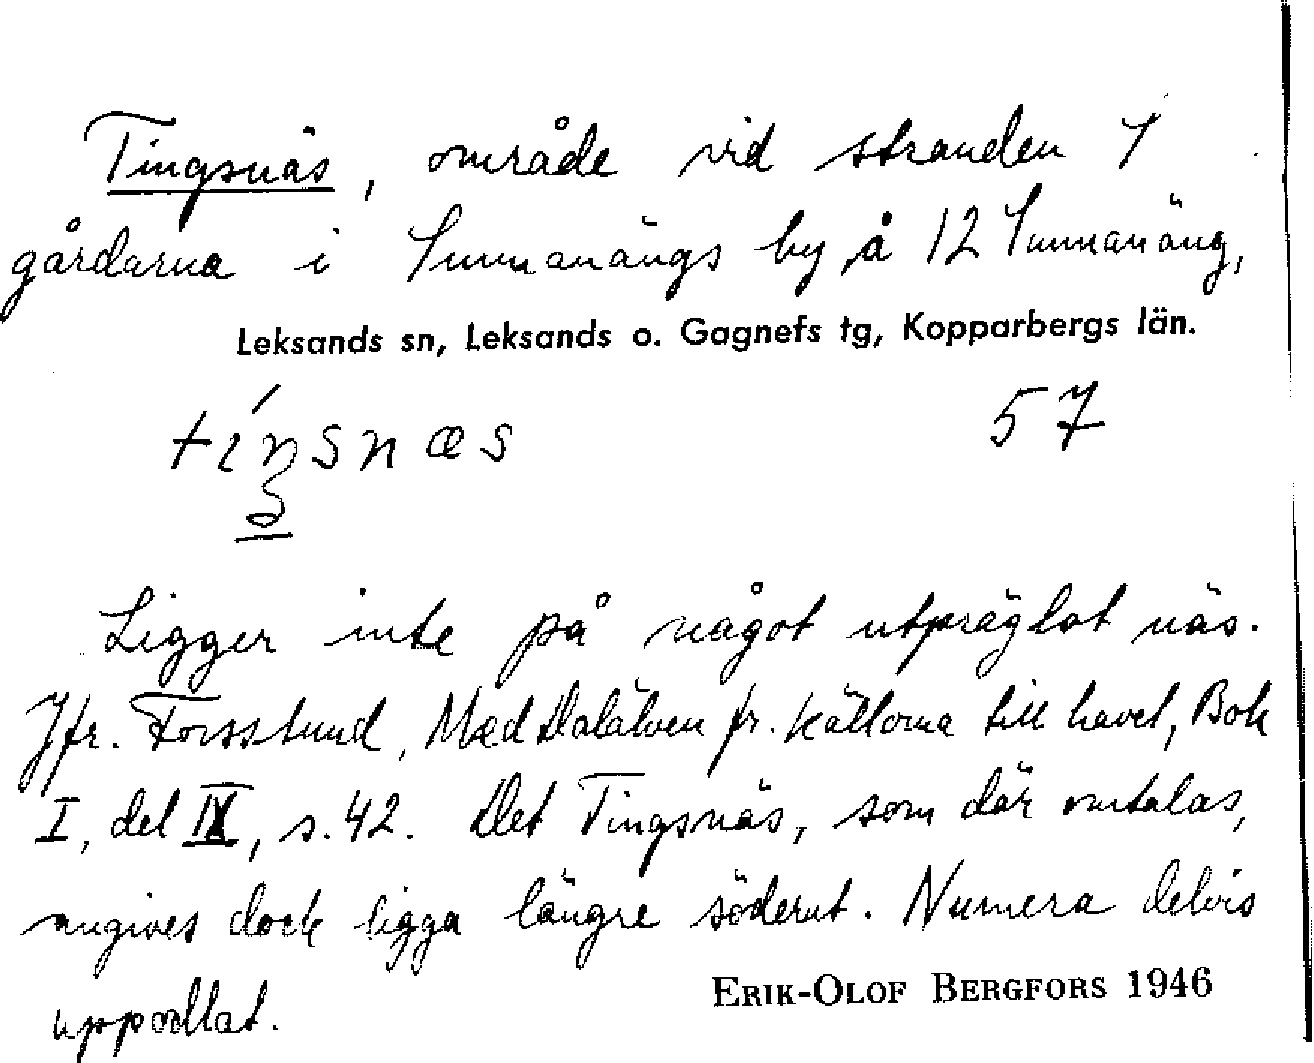 Tingsnäs, område vid stranden S
gårdarna i Sunnanängs by, å 12 Sunnanäng,
Leksands sn, Leksands o. Gagnefs tg, Kopparbergs län.
57
Ligger inte på något utpräglat näs.
Jfr. Forsslund, Med Dalälven fr. källorna till havet, Bok
I, del IX, s. 42. Det Tingsnäs, som där omtalas,
angives dock ligga längre söderut. Numera delvis
uppodlat.
ERIK-OLOF BERGFORS 1946